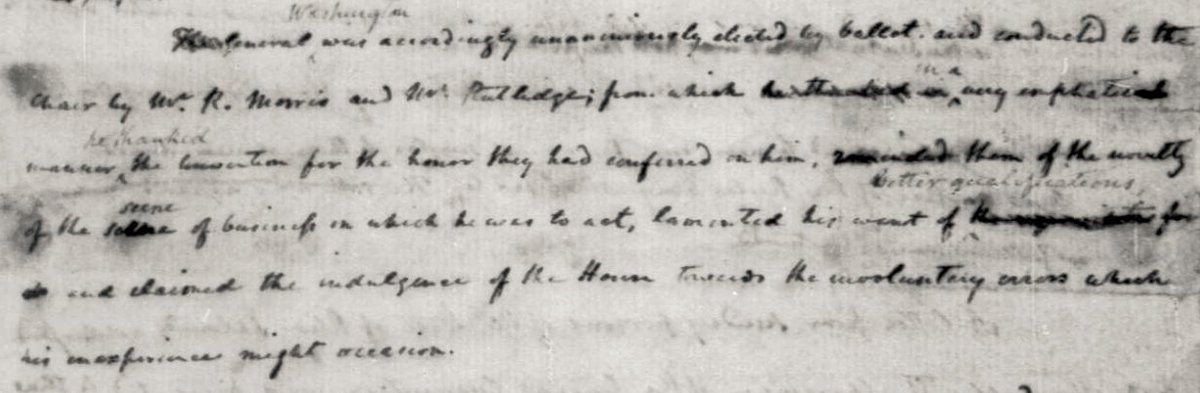 Washington
General was accordingly unanimously elected by ballot. and conducted to the
in a
chair by Mr. R. Morris and Mr. Rutlidge; from which he thanked in very emphatical
he thanked
manner, the Convention for the honor they had conferred on him, reminded them of the novelty
better qualifications,
scene
of the scene of business in which he was to act, lamented his want of the requisites for
and claimed the indulgence of the House towards the involuntary errors which
his inexperience might occasion.